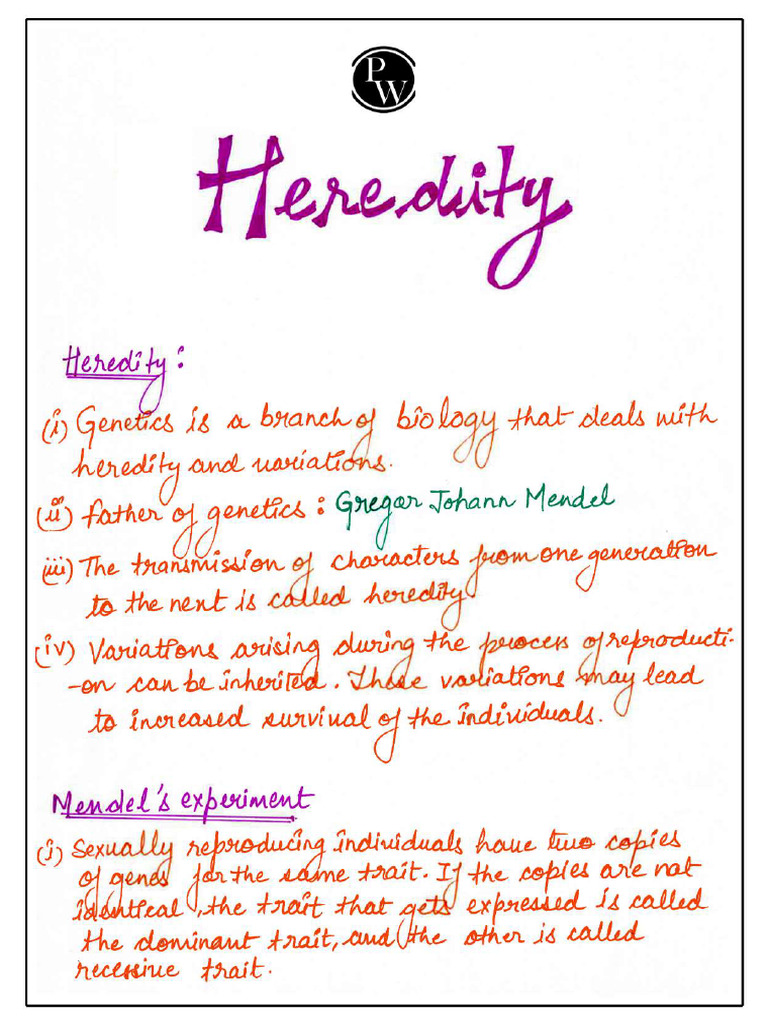 PW
Heredity
Heredity:
(i) Genetics is a branch of biology that deals with
heredity and variations.
(ii) Father of genetics: Gregar Johann Mendel
(iii) The transmission of characters from one generation
to the next is called heredity
(iv) Variations arising during the process of reproducti-
-on can be inherited. These variations may lead
to increased survival of the individuals.
Mendel's experiment
(i) Sexually reproducing individuals have two copies
of genes for the same trait. If the copies are not
identical, the trait that gets expressed is called
the dominant trait, and the other is called
recessive trait.